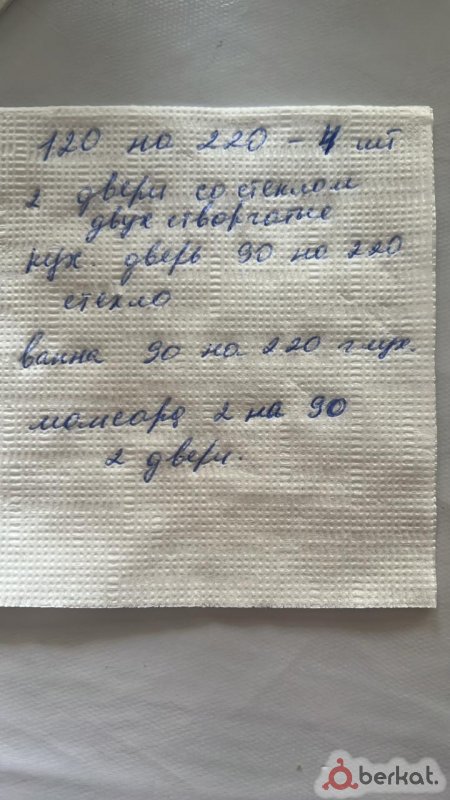 120 на 220 - 4 шт
2 двери со стеклом
двух створчатые
кух дверь 90 на 220
стекло
ванна 90 на 220 глух.
момсард 2 на 90
2 двери.
berkat.